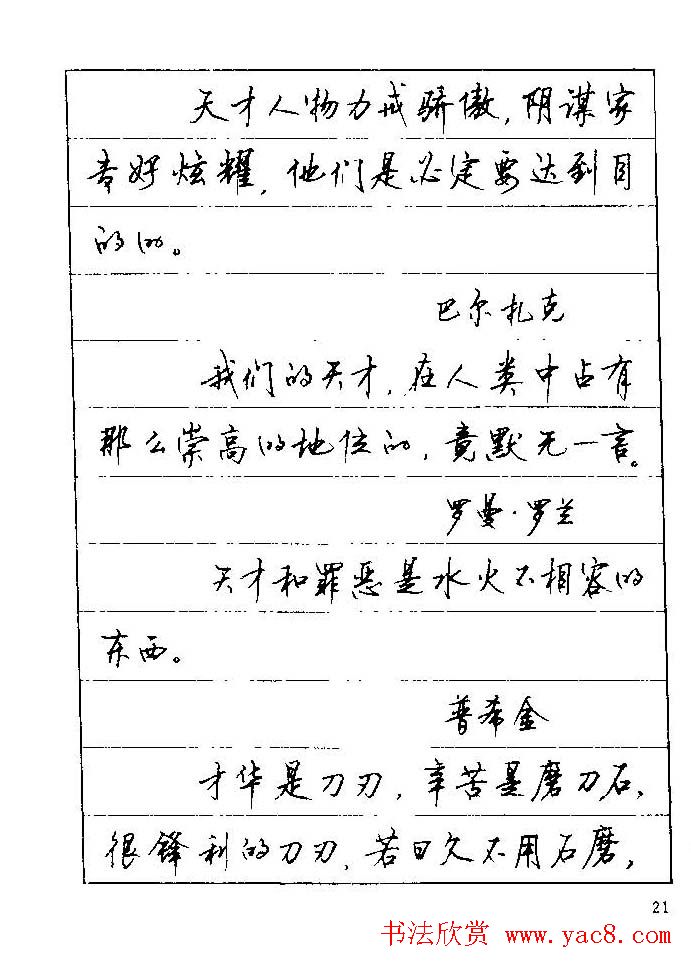 天才人物力戒骄傲，阴谋家
喜好炫耀，他们是必定要达到目
的的。
巴尔扎克
我们的天才，在人类中占有
那么崇高的地位的，竟默无一言。
罗曼·罗兰
天才和罪恶是水火不相容的
东西。
普希金
才华是刀刃，辛苦是磨刀石，
很锋利的刀刃，若日久不用石磨，
21
书法欣赏 www.yac8.com